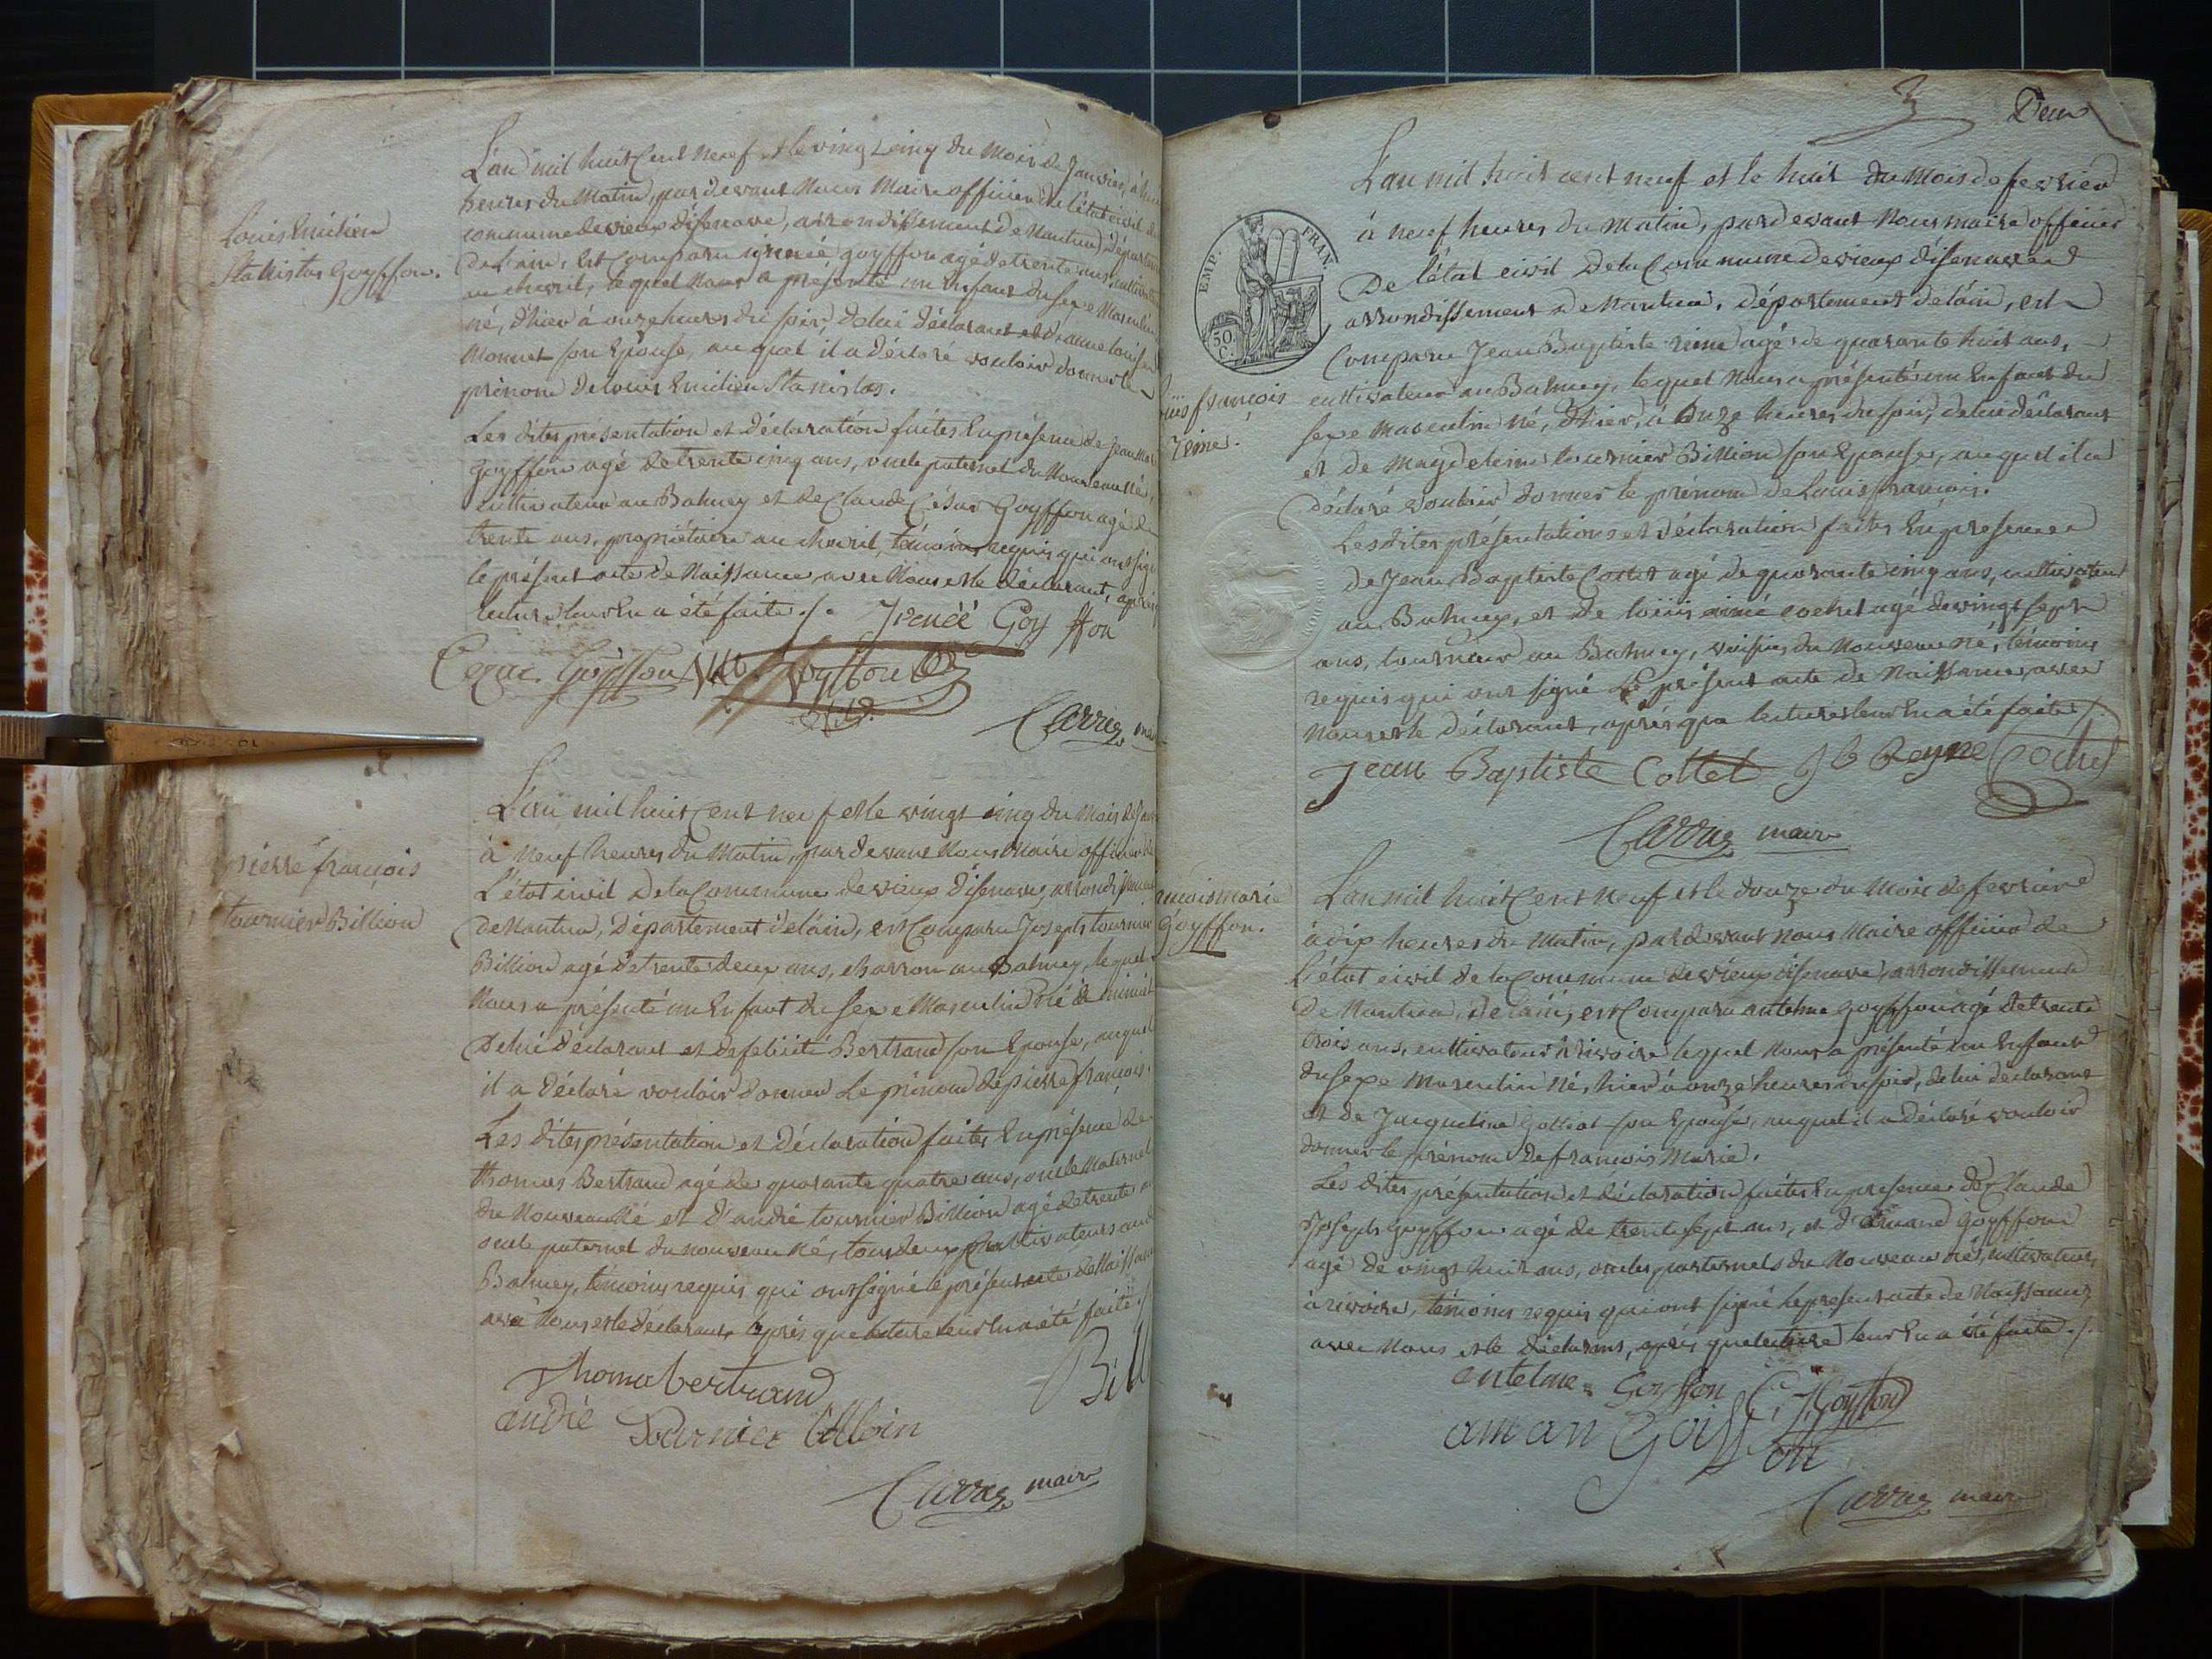 Louis Emilien
Stanislas Goyffon.
L'an mil huit Cent Neuf et le vingt cinq du Mois de Janvier, à
heures du Matin, par devant Nous Maire officier de l'état civil de
commune de vieux d'isenave, arrondissement de Nantua, départem
de l'ain, est Comparu irénée goyffon agé de trente ans, cultivate
au chevril, lequel Nous a présenté un Enfant du sexe Masculin
né, d'hier à onze heures du soir, de lui déclarant et d'anne louise
Monnet son Epouse, au quel il a déclaré vouloir donner le
prénom de Louis Emilien Stanislas.
Les dites présentation et déclaration faites En présence de Jean
Goyffon agé de trente cinq ans, oncle paternel du Nouveau né,
cultivateur au Balmey et de Claude César Goyffon agé de
trente ans, propriétaire au chevril, témoins requis qui ont sig
le présent acte de Naissance, avec Nous et le déclarant, après
lecture leur En a été faite ./. Irénéé Goy ffon
Cezar Goyffon Goyffon
Carraz mai
pierre françois
tournier Billion
L'an mil huit Cent neuf et le vingt cinq du Mois de Jan
à Neuf heures du Matin, par devant Nous Maire officier de
L'état civil de la Commune de vieux d'isenave, arrondissement
de Nantua, Département de l'ain, est Comparu Joseph tournier
Billion agé de trente deux ans, charron au Balmey, lequel
Nous a présenté un Enfant du sexe Masculin né à minuit
De lui déclarant et de felicité Bertrand son Epouse, auquel
il a déclaré vouloir donner le prénom de pierre françois.
Les dites présentation et déclaration faites En présence de
thomas Bertrand agé de quarante quatre ans, oncle Maternel
du Nouveau Né et d'andré tournier Billion agé de trente a
oncle paternel du nouveau né, tous deux cultivateurs au
Balmey, témoins requis qui ont signé le présent acte de Naissance
avec Nous et le déclarant, après que lecture leur En a été faite ./.
thoma bertrand Bill
andré tournier billoin
Carraz maire
3 Deux
EMP. FRAN.
50 C.
L'an mil huit cent neuf et le huit du Mois de fevrier
à neuf heures du Matin, par devant Nous maire officier
De l'état civil De la Commune de vieux d'isenave
arrondissement de Nantua, département de l'ain, est
Comparu Jean Baptiste reine agé de quarante huit ans,
uis françois
reine.
cultivateur au Balmey, lequel Nous a présenté un Enfant du
sexe Masculin né, d'hier, à Onze heures du soir, de lui déclarant
et de Magdeleine tournier Billion son Epouse, auquel il a
déclaré vouloir donner le prénom de Louis françois.
Lesdites présentations et déclaration faites En presence
de Jean Baptiste Cottet agé de quarante cinq ans, cultivateur
au Balmey, et de loüis aimé cochet agé de vingt sept
ans, tourneur au Balmey, voisins du Nouveau né, témoins
requis qui ont signé le présent acte de Naissance, avec
Nous et le déclarant, après que lecture leur En a été faite ./.
Jean Baptiste Cottet J b Reyne Cochet
Carraz maire
ançois marie
Goyffon.
L'an mil huit Cent Neuf et le douze du Mois de fevrier
à dix heures du Matin, par devant Nous Maire officier de
l'état civil de la Commune de vieux d'isenave, arrondissement
de Nantua, de l'ain, est Comparu antelme goyffon agé de trente
trois ans, cultivateur à rivoire lequel Nous a présenté un Enfant
du sexe Masculin Né, hier à onze heures du soir, de lui déclarant
et de Jacqueline Golliat son Epouse, auquel il a déclaré vouloir
donner le prénom de françois Marie.
Les dites présentation et déclaration faites En presence de Claude
Joseph goyffon agé de trente sept ans, et d'amand Goyffon
agé de vingt huit ans, oncles paternels du Nouveau né, cultivateurs
à rivoire, témoins requis qui ont signé le present acte de Naissance,
avec Nous et le déclarant, après que lecture leur En a été faite ./.
antelme Goyffon C. J. Goyffon
aman Goiff on
Carraz maire